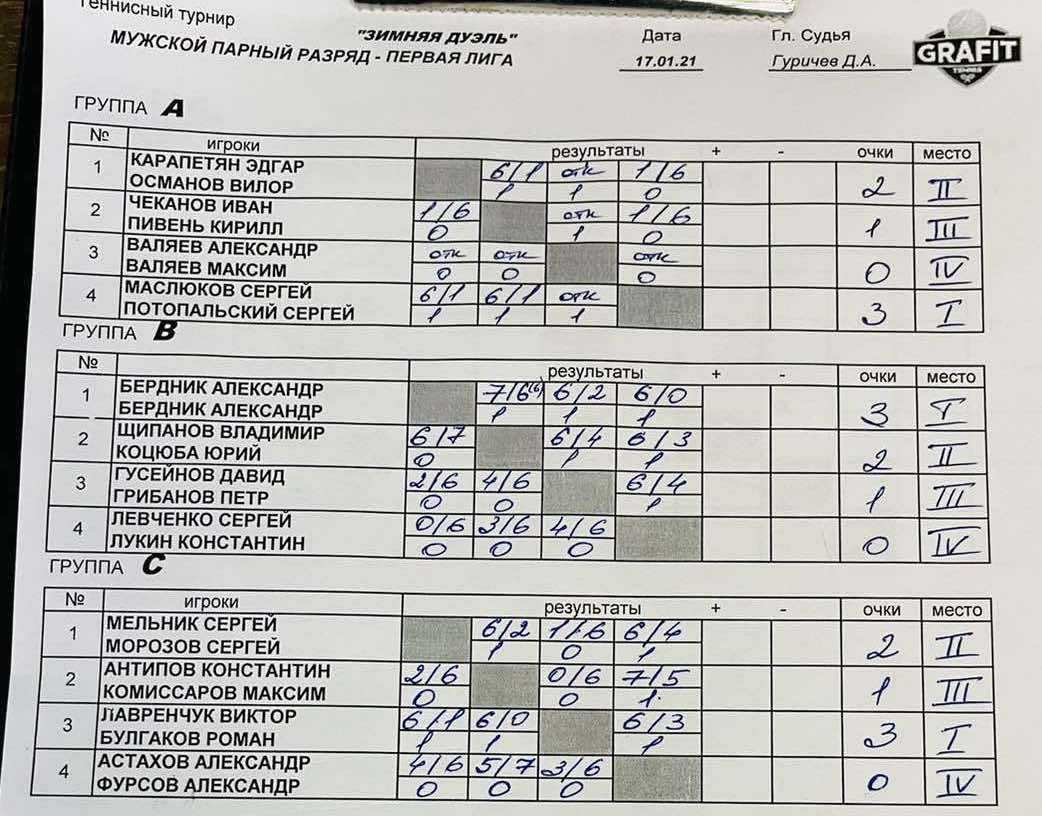 Теннисный турнир
"ЗИМНЯЯ ДУЭЛЬ"
Дата
Гл. Судья
МУЖСКОЙ ПАРНЫЙ РАЗРЯД - ПЕРВАЯ ЛИГА
17.01.21
Гуричев Д.А.
GRAFIT
TENNIS
ГРУППА A
№ игроки результаты + - очки место
1 КАРАПЕТЯН ЭДГАР 6/1 отк 1/6
ОСМАНОВ ВИЛОР 1 1 0 2 II
2 ЧЕКАНОВ ИВАН 1/6 отк 1/6
ПИВЕНЬ КИРИЛЛ 0 1 0 1 III
3 ВАЛЯЕВ АЛЕКСАНДР отк отк отк
ВАЛЯЕВ МАКСИМ 0 0 0 0 IV
4 МАСЛЮКОВ СЕРГЕЙ 6/1 6/1 отк
ПОТОПАЛЬСКИЙ СЕРГЕЙ 1 1 1 3 I
ГРУППА B
№ результаты + - очки место
1 БЕРДНИК АЛЕКСАНДР 7/6(6) 6/2 6/0
БЕРДНИК АЛЕКСАНДР 1 1 1 3 I
2 ЩИПАНОВ ВЛАДИМИР 6/7 6/4 6/3
КОЦЮБА ЮРИЙ 0 1 1 2 II
3 ГУСЕЙНОВ ДАВИД 2/6 4/6 6/4
ГРИБАНОВ ПЕТР 0 0 1 1 III
4 ЛЕВЧЕНКО СЕРГЕЙ 0/6 3/6 4/6
ЛУКИН КОНСТАНТИН 0 0 0 0 IV
ГРУППА C
№ игроки результаты + - очки место
1 МЕЛЬНИК СЕРГЕЙ 6/2 1/6 6/4
МОРОЗОВ СЕРГЕЙ 1 0 1 2 II
2 АНТИПОВ КОНСТАНТИН 2/6 0/6 7/5
КОМИССАРОВ МАКСИМ 0 0 1 1 III
3 ЛАВРЕНЧУК ВИКТОР 6/1 6/0 6/3
БУЛГАКОВ РОМАН 1 1 1 3 I
4 АСТАХОВ АЛЕКСАНДР 4/6 5/7 3/6
ФУРСОВ АЛЕКСАНДР 0 0 0 0 IV